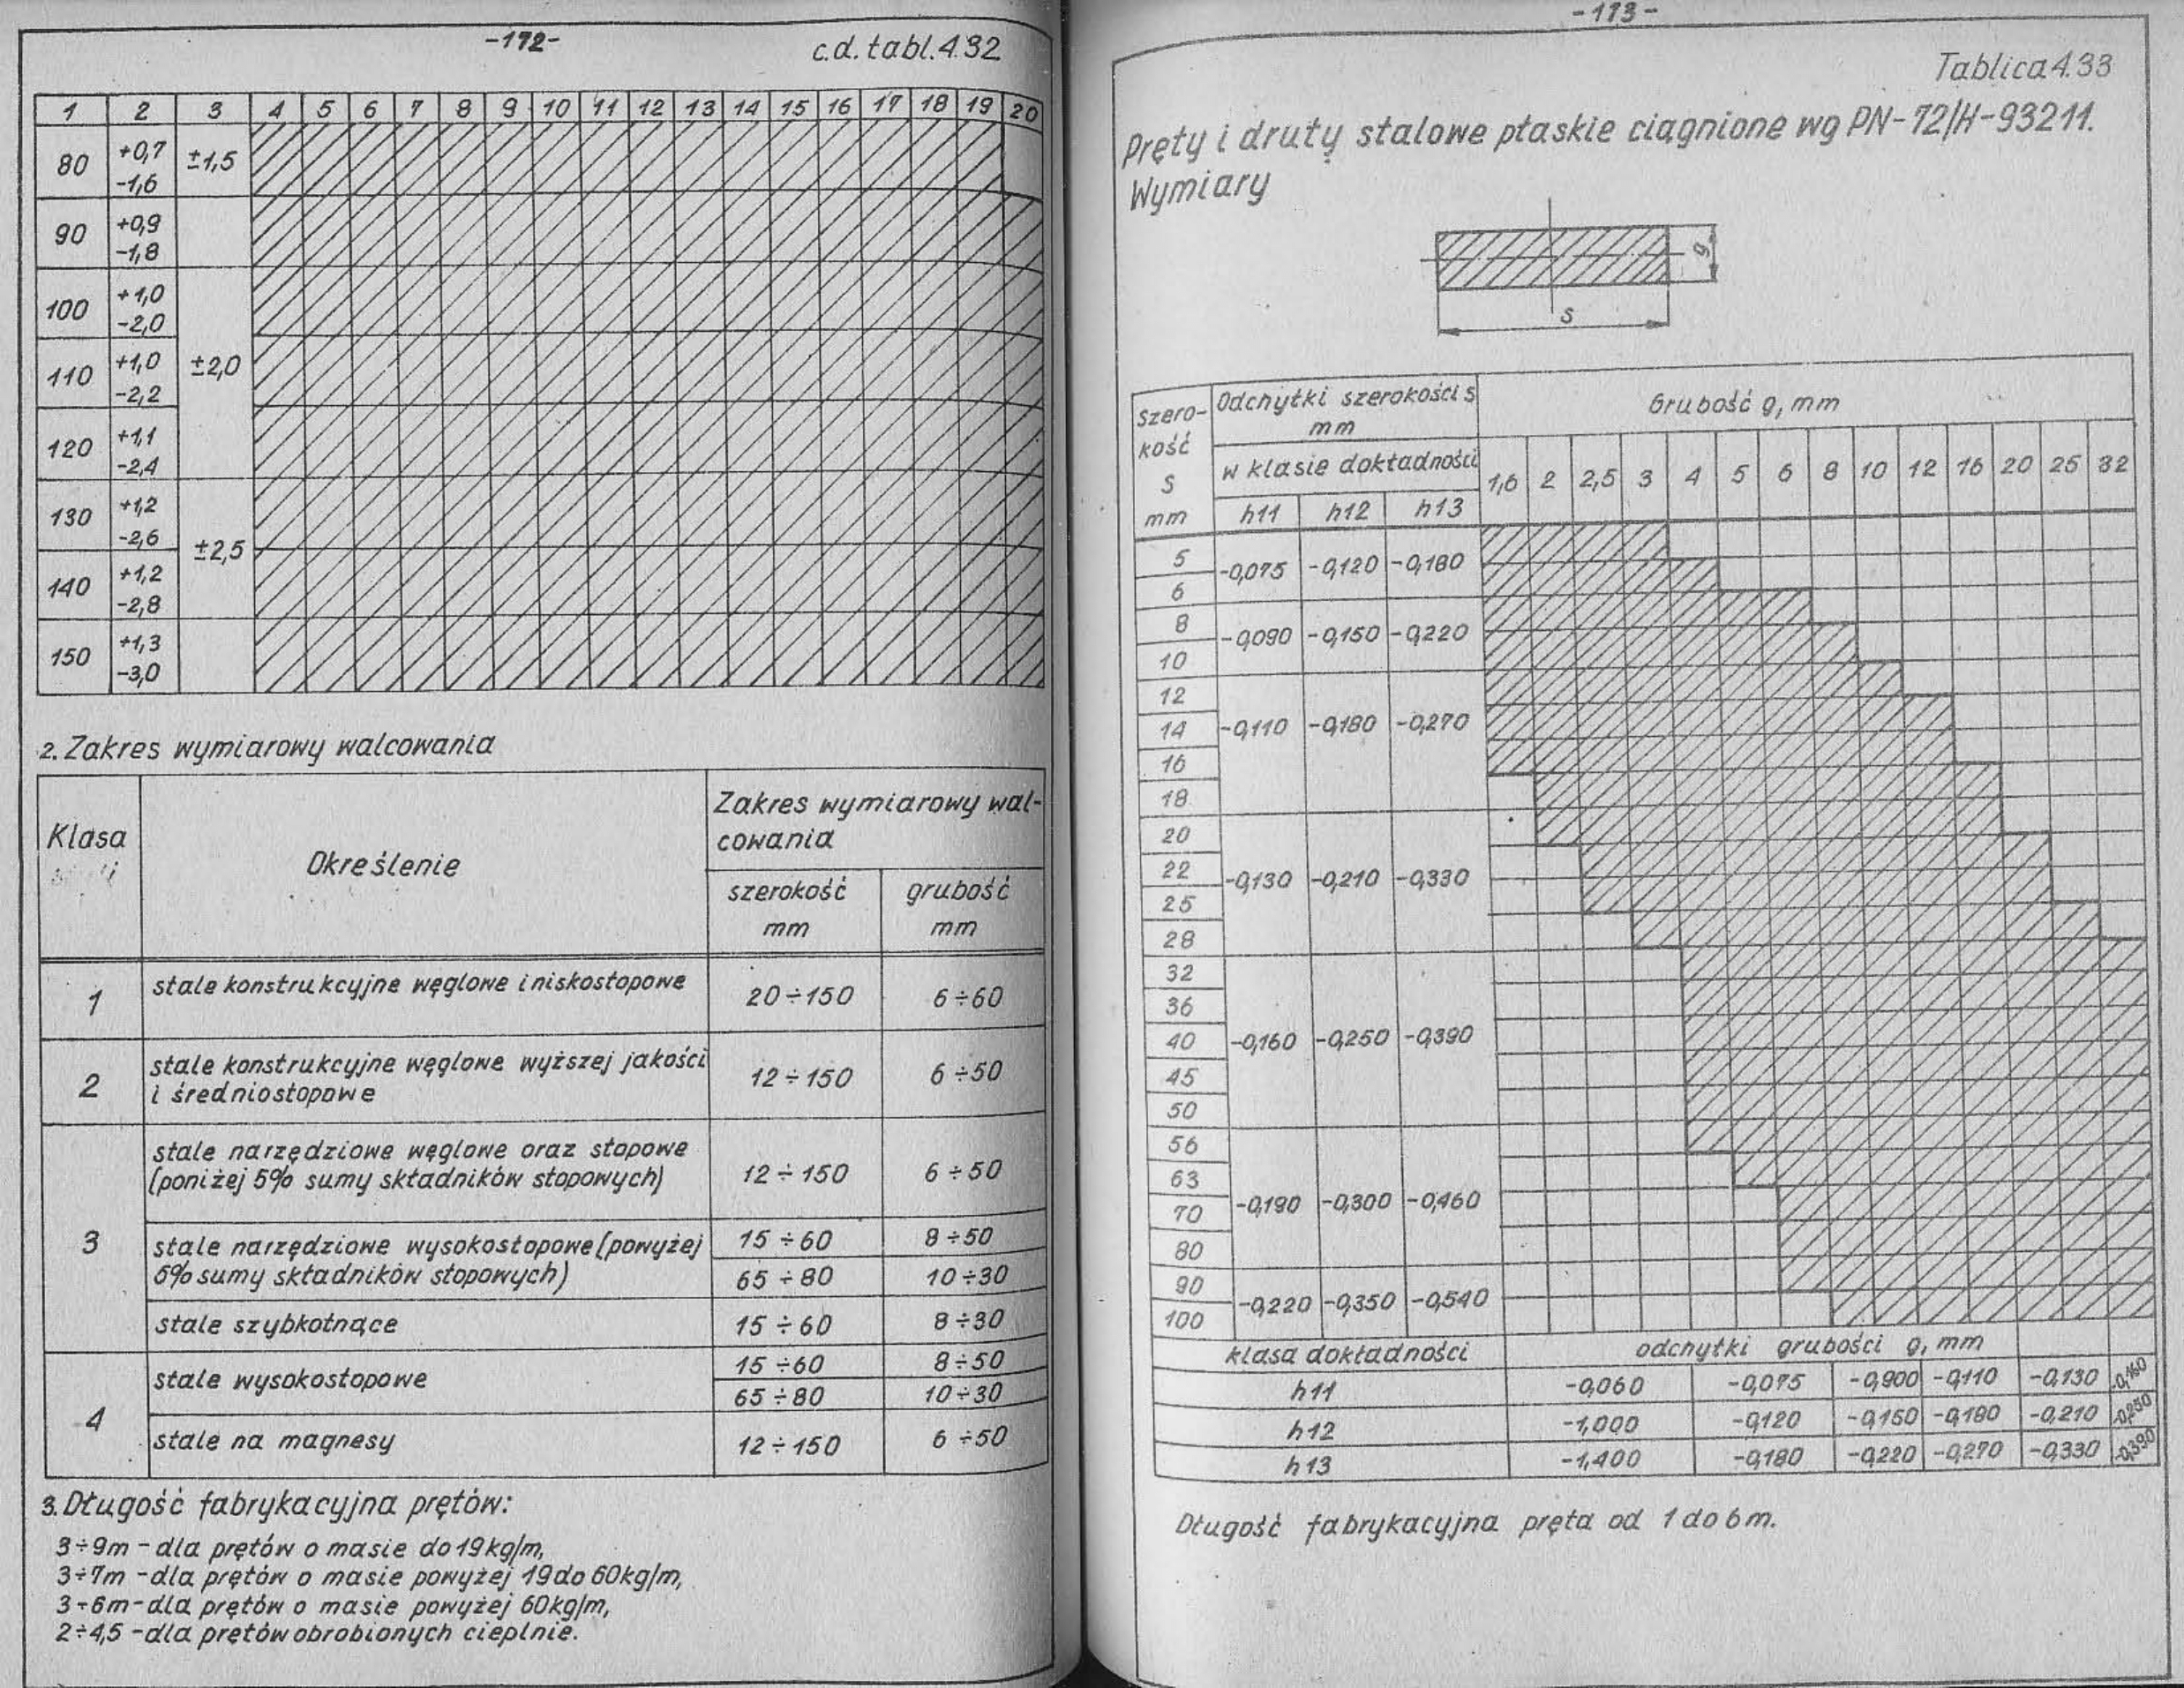 -172-
c.d. tabl. 4.32
1 2 3 4 5 6 7 8 9 10 11 12 13 14 15 16 17 18 19 20
80 +0,7 -1,6 ±1,5
90 +0,9 -1,8
100 +1,0 -2,0
110 +1,0 -2,2 ±2,0
120 +1,1 -2,4
130 +1,2 -2,6
±2,5
140 +1,2 -2,8
150 +1,3 -3,0
2. Zakres wymiarowy walcowania
Klasa
Określenie
Zakres wymiarowy wal-
cowania
szerokość
mm
grubość
mm
1 stale konstrukcyjne węglowe i niskostopowe 20÷150 6÷60
2 stale konstrukcyjne węglowe wyższej jakości
i średniostopowe 12÷150 6÷50
3 stale narzędziowe węglowe oraz stopowe
(poniżej 5% sumy składników stopowych) 12÷150 6÷50
stale narzędziowe wysokostopowe (powyżej 15÷60 8÷50
5% sumy składników stopowych) 65÷80 10÷30
stale szybkotnące 15÷60 8÷30
4 stale wysokostopowe 15÷60 8÷50
65÷80 10÷30
stale na magnesy 12÷150 6÷50
3. Długość fabrykacyjna prętów:
3÷9m - dla prętów o masie do 19kg/m,
3÷7m - dla prętów o masie powyżej 19 do 60kg/m,
3÷6m - dla prętów o masie powyżej 60kg/m,
2÷4,5 - dla prętów obrobionych cieplnie.
-173-
Tablica 4.33
Pręty i druty stalowe płaskie ciągnione wg PN-72/H-93211.
Wymiary
g
s
Szero-
kość
s
mm
Odchyłki szerokości s
mm
w klasie dokładności
h11 h12 h13
Grubość g, mm
1,6 2 2,5 3 4 5 6 8 10 12 16 20 25 32
5
-0,075 -0,120 -0,180
6
8
-0,090 -0,150 -0,220
10
12
14 -0,110 -0,180 -0,270
16
18
20
22
-0,130 -0,210 -0,330
25
28
32
36
40 -0,160 -0,250 -0,390
45
50
56
63
-0,190 -0,300 -0,460
70
80
90
-0,220 -0,350 -0,540
100
klasa dokładności odchyłki grubości g, mm
h11 -0,060 -0,075 -0,900 -0,110 -0,130 -0,160
h12 -1,000 -0,120 -0,150 -0,180 -0,210 -0,250
h13 -1,400 -0,180 -0,220 -0,270 -0,330 -0,390
Długość fabrykacyjna pręta od 1 do 6m.